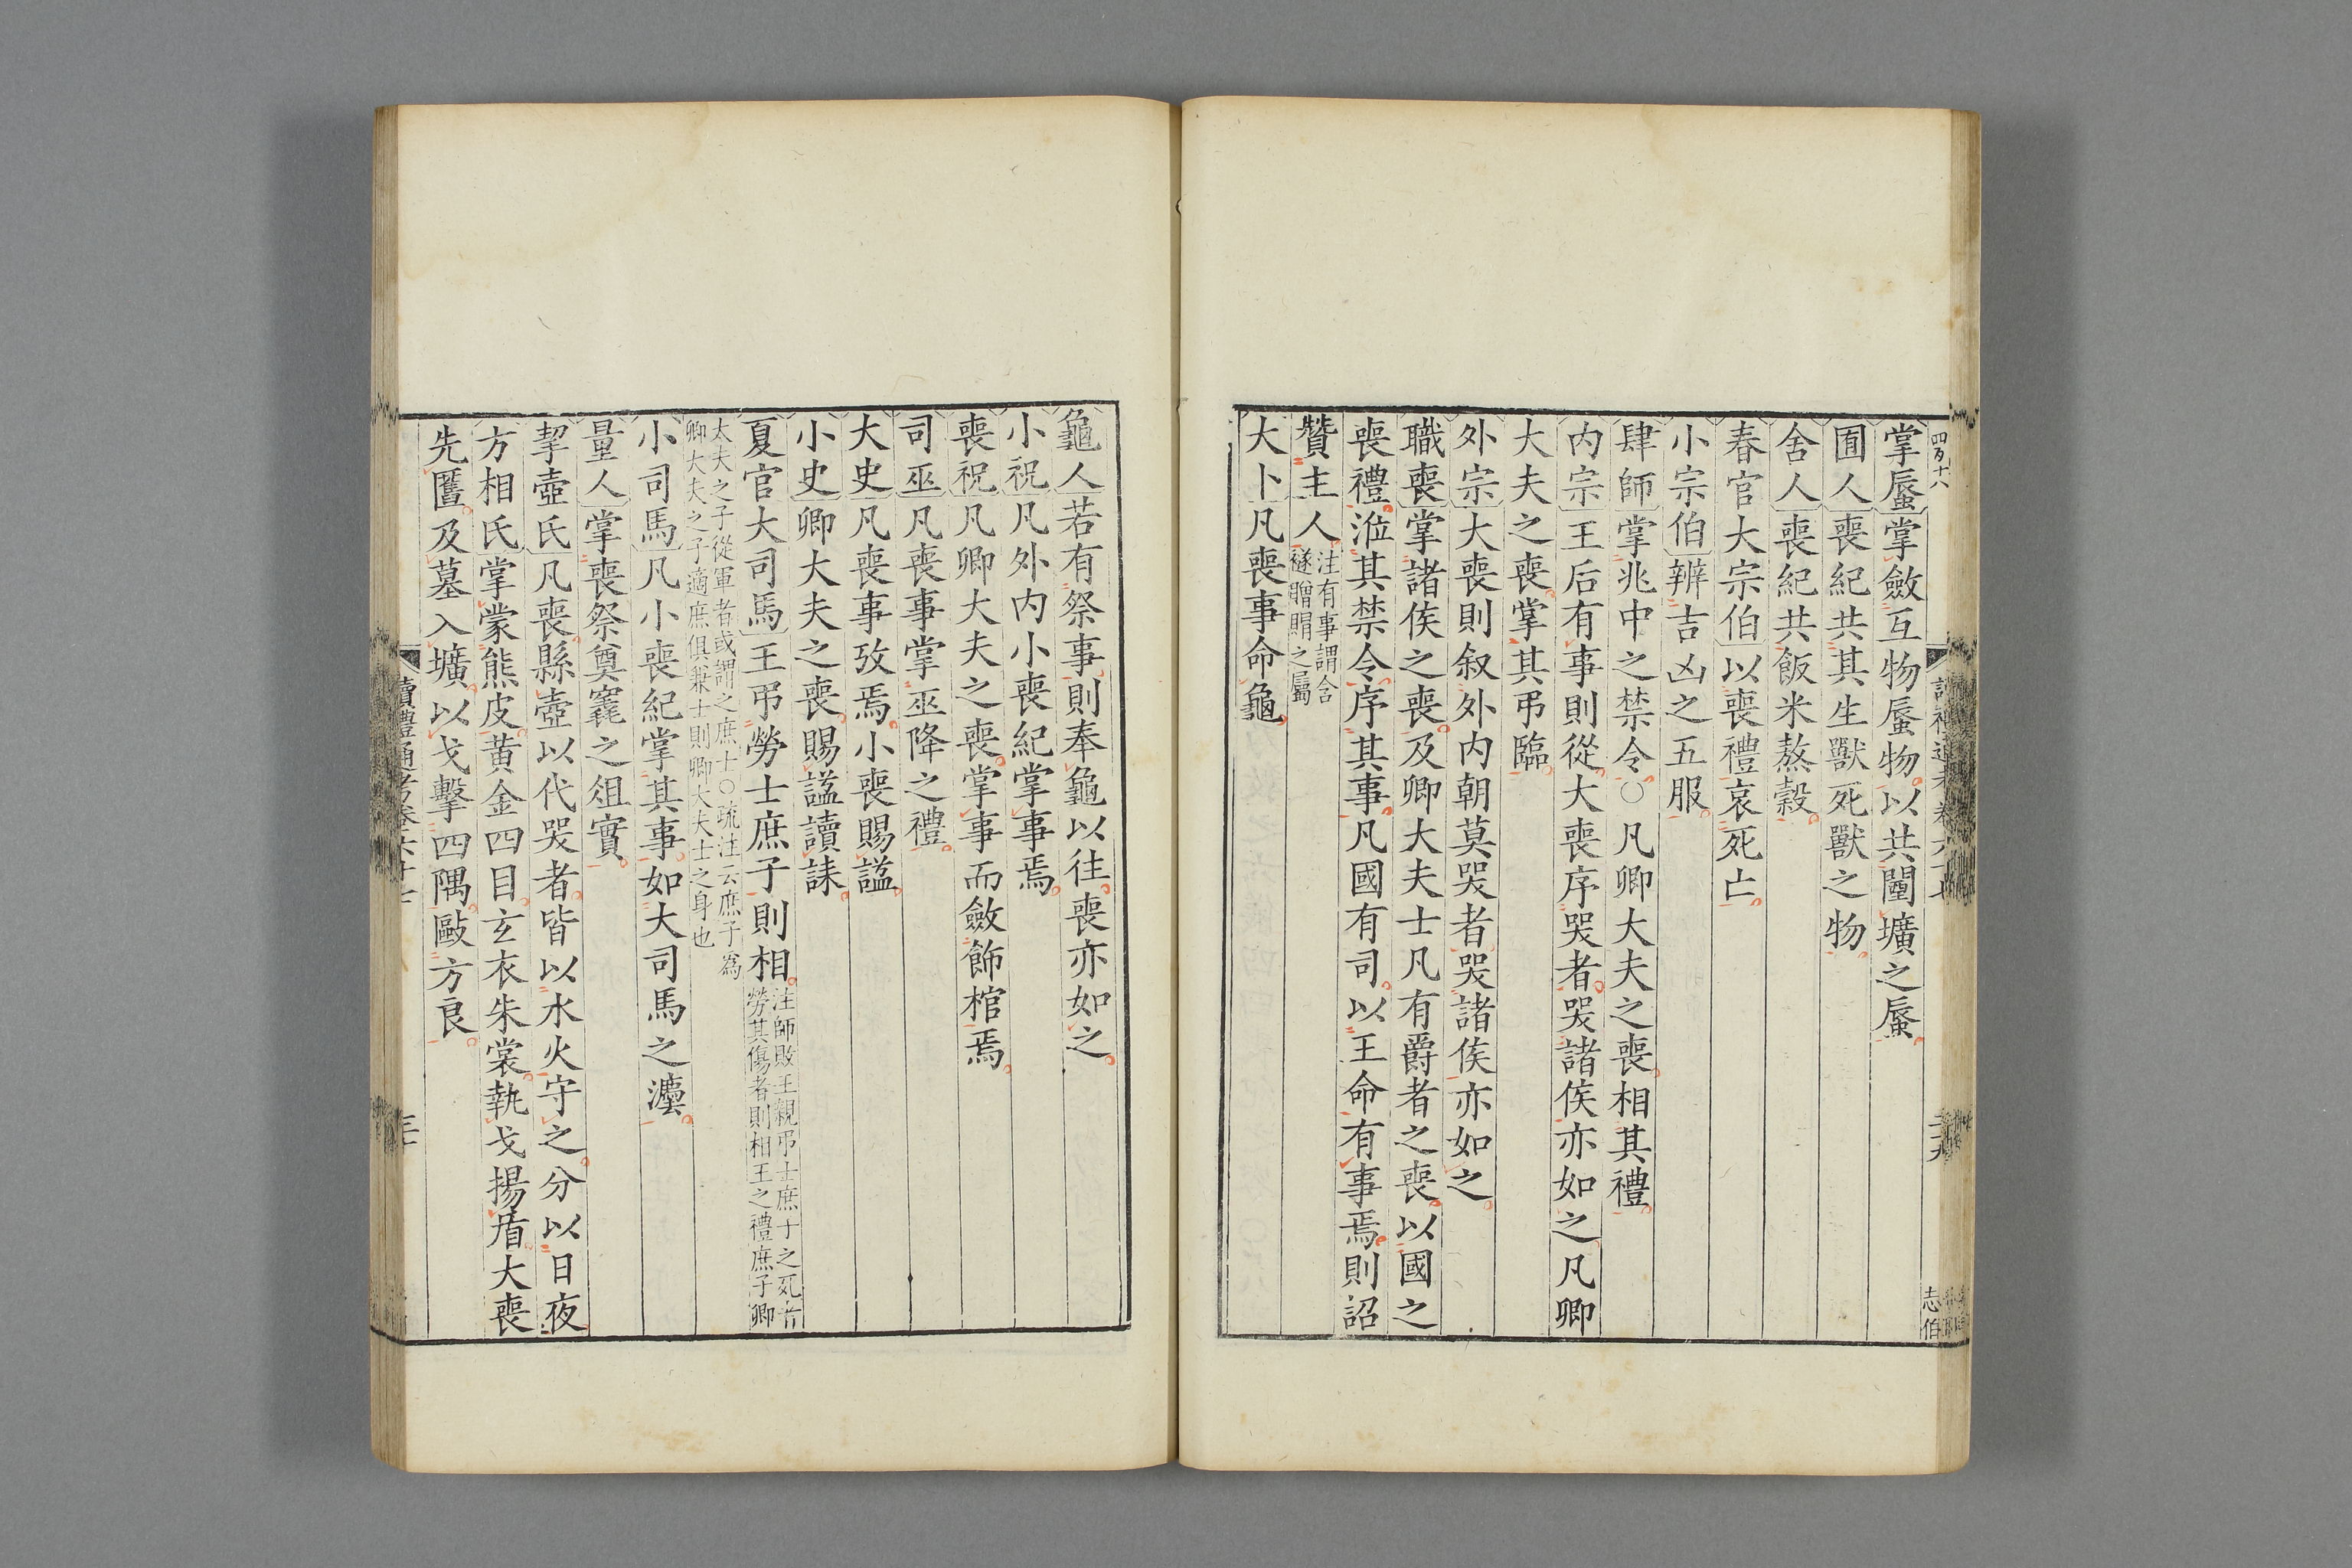 四百十八
掌蜃掌斂互物蜃物以共闉壙之蜃
囿人喪紀共其生獸死獸之物
舍人喪紀共飯米熬穀
春官大宗伯以喪禮哀死亡
小宗伯辨吉凶之五服
肆師掌兆中之禁令○凡卿大夫之喪相其禮
内宗王后有事則從大喪序哭者哭諸侯亦如之凡卿
大夫之喪掌其弔臨
外宗大喪則叙外内朝莫哭者哭諸侯亦如之
職喪掌諸侯之喪及卿大夫士凡有爵者之喪以國之
喪禮涖其禁令序其事凡國有司以王命有事焉則詔
贊主人注有事謂含
襚贈賵之屬
大卜凡喪事命龜
志伯
龜人若有祭事則奉龜以往喪亦如之
小祝凡外内小喪紀掌事焉
喪祝凡卿大夫之喪掌事而斂飾棺焉
司巫凡喪事掌巫降之禮
大史凡喪事攷焉小喪賜諡
小史卿大夫之喪賜諡讀誄
夏官大司馬王弔勞士庶子則相注師敗王親弔士庶子之死者
勞其傷者則相王之禮庶子卿
大夫之子從軍者或謂之庶士○疏注云庶子為
卿大夫之子適庶俱兼士則卿大夫士之身也
小司馬凡小喪紀掌其事如大司馬之灋
量人掌喪祭奠竁之俎實
挈壺氏凡喪縣壺以代哭者皆以水火守之分以日夜
方相氏掌蒙熊皮黄金四目玄衣朱裳執戈揚盾大喪
先匶及墓入壙以戈擊四隅敺方良
讀禮通考卷六十七